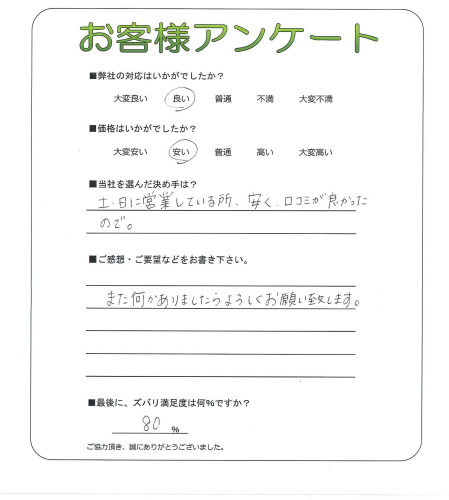 お客様アンケート
■弊社の対応はいかがでしたか？
大変良い 良い 普通 不満 大変不満
■価格はいかがでしたか？
大変安い 安い 普通 高い 大変高い
■当社を選んだ決め手は？
土・日に営業している所、安く、口コミが良かった
ので。
■ご感想・ご要望などをお書き下さい。
また何かありましたらよろしくお願い致します。
■最後に、ズバリ満足度は何%ですか？
80 %
ご協力頂き、誠にありがとうございました。